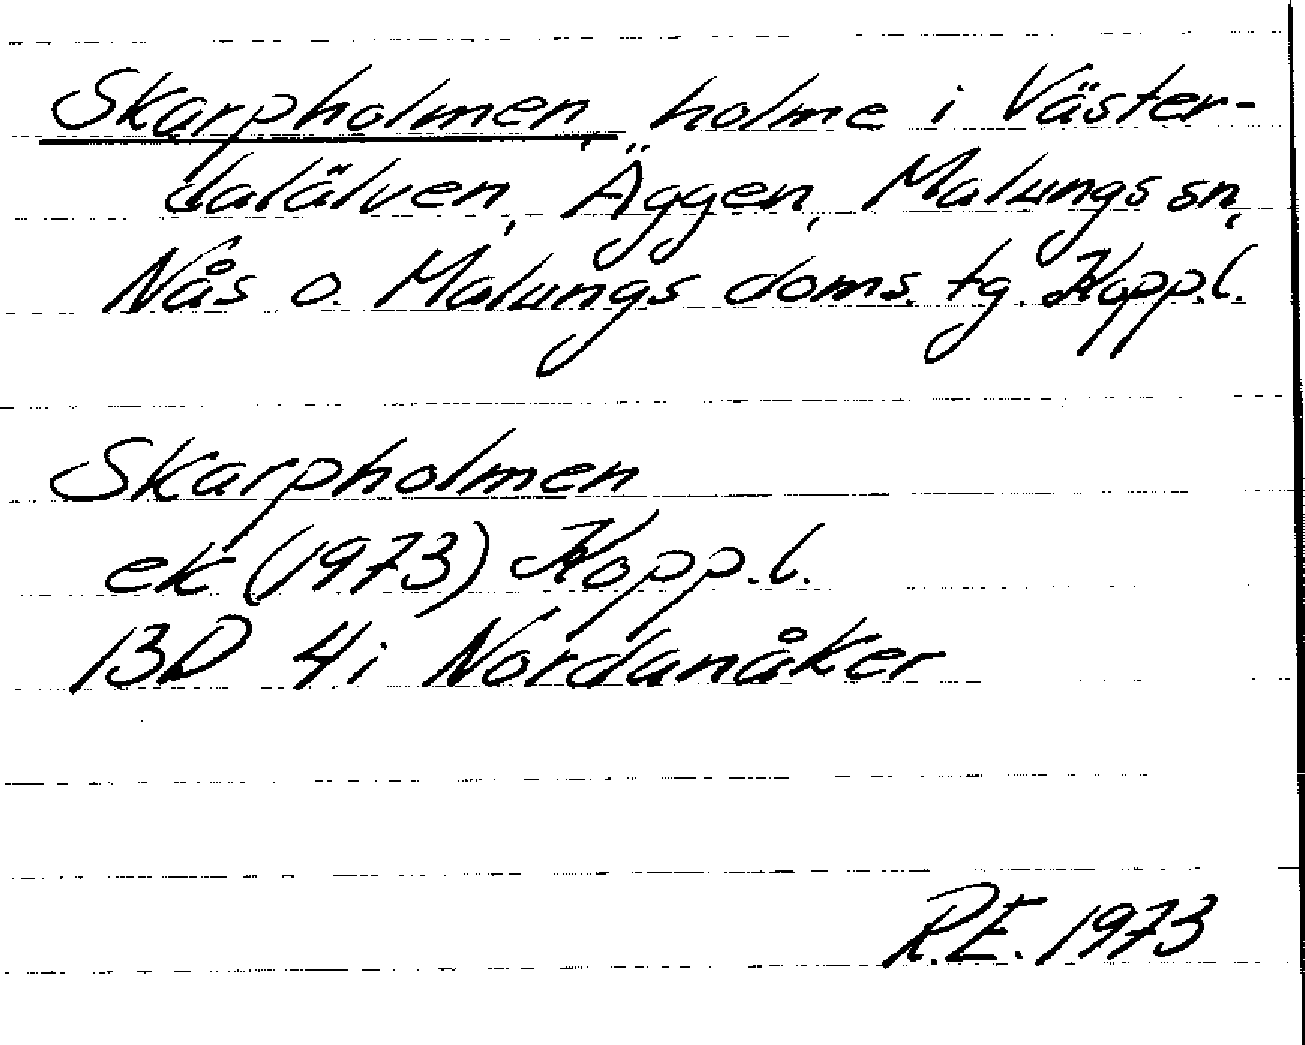 Skarpholmen, holme i Väster-
dalälven, Äggen, Malungs sn,
Nås o. Malungs doms. tg. Kopp.l.
Skarpholmen
ek (1973) Kopp.l.
13D 4i Nordanåker
R.E. 1973